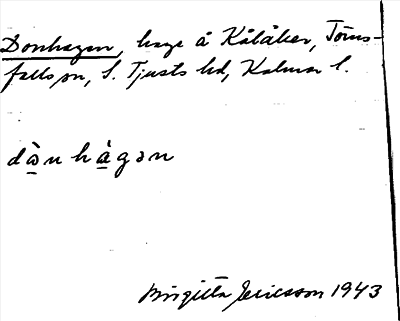 Donhagen, hage å Kålåker, Törns-
falls sn, S. Tjusts hd, Kalmar l.
dànhàgən
Birgitta Ericsson 1943